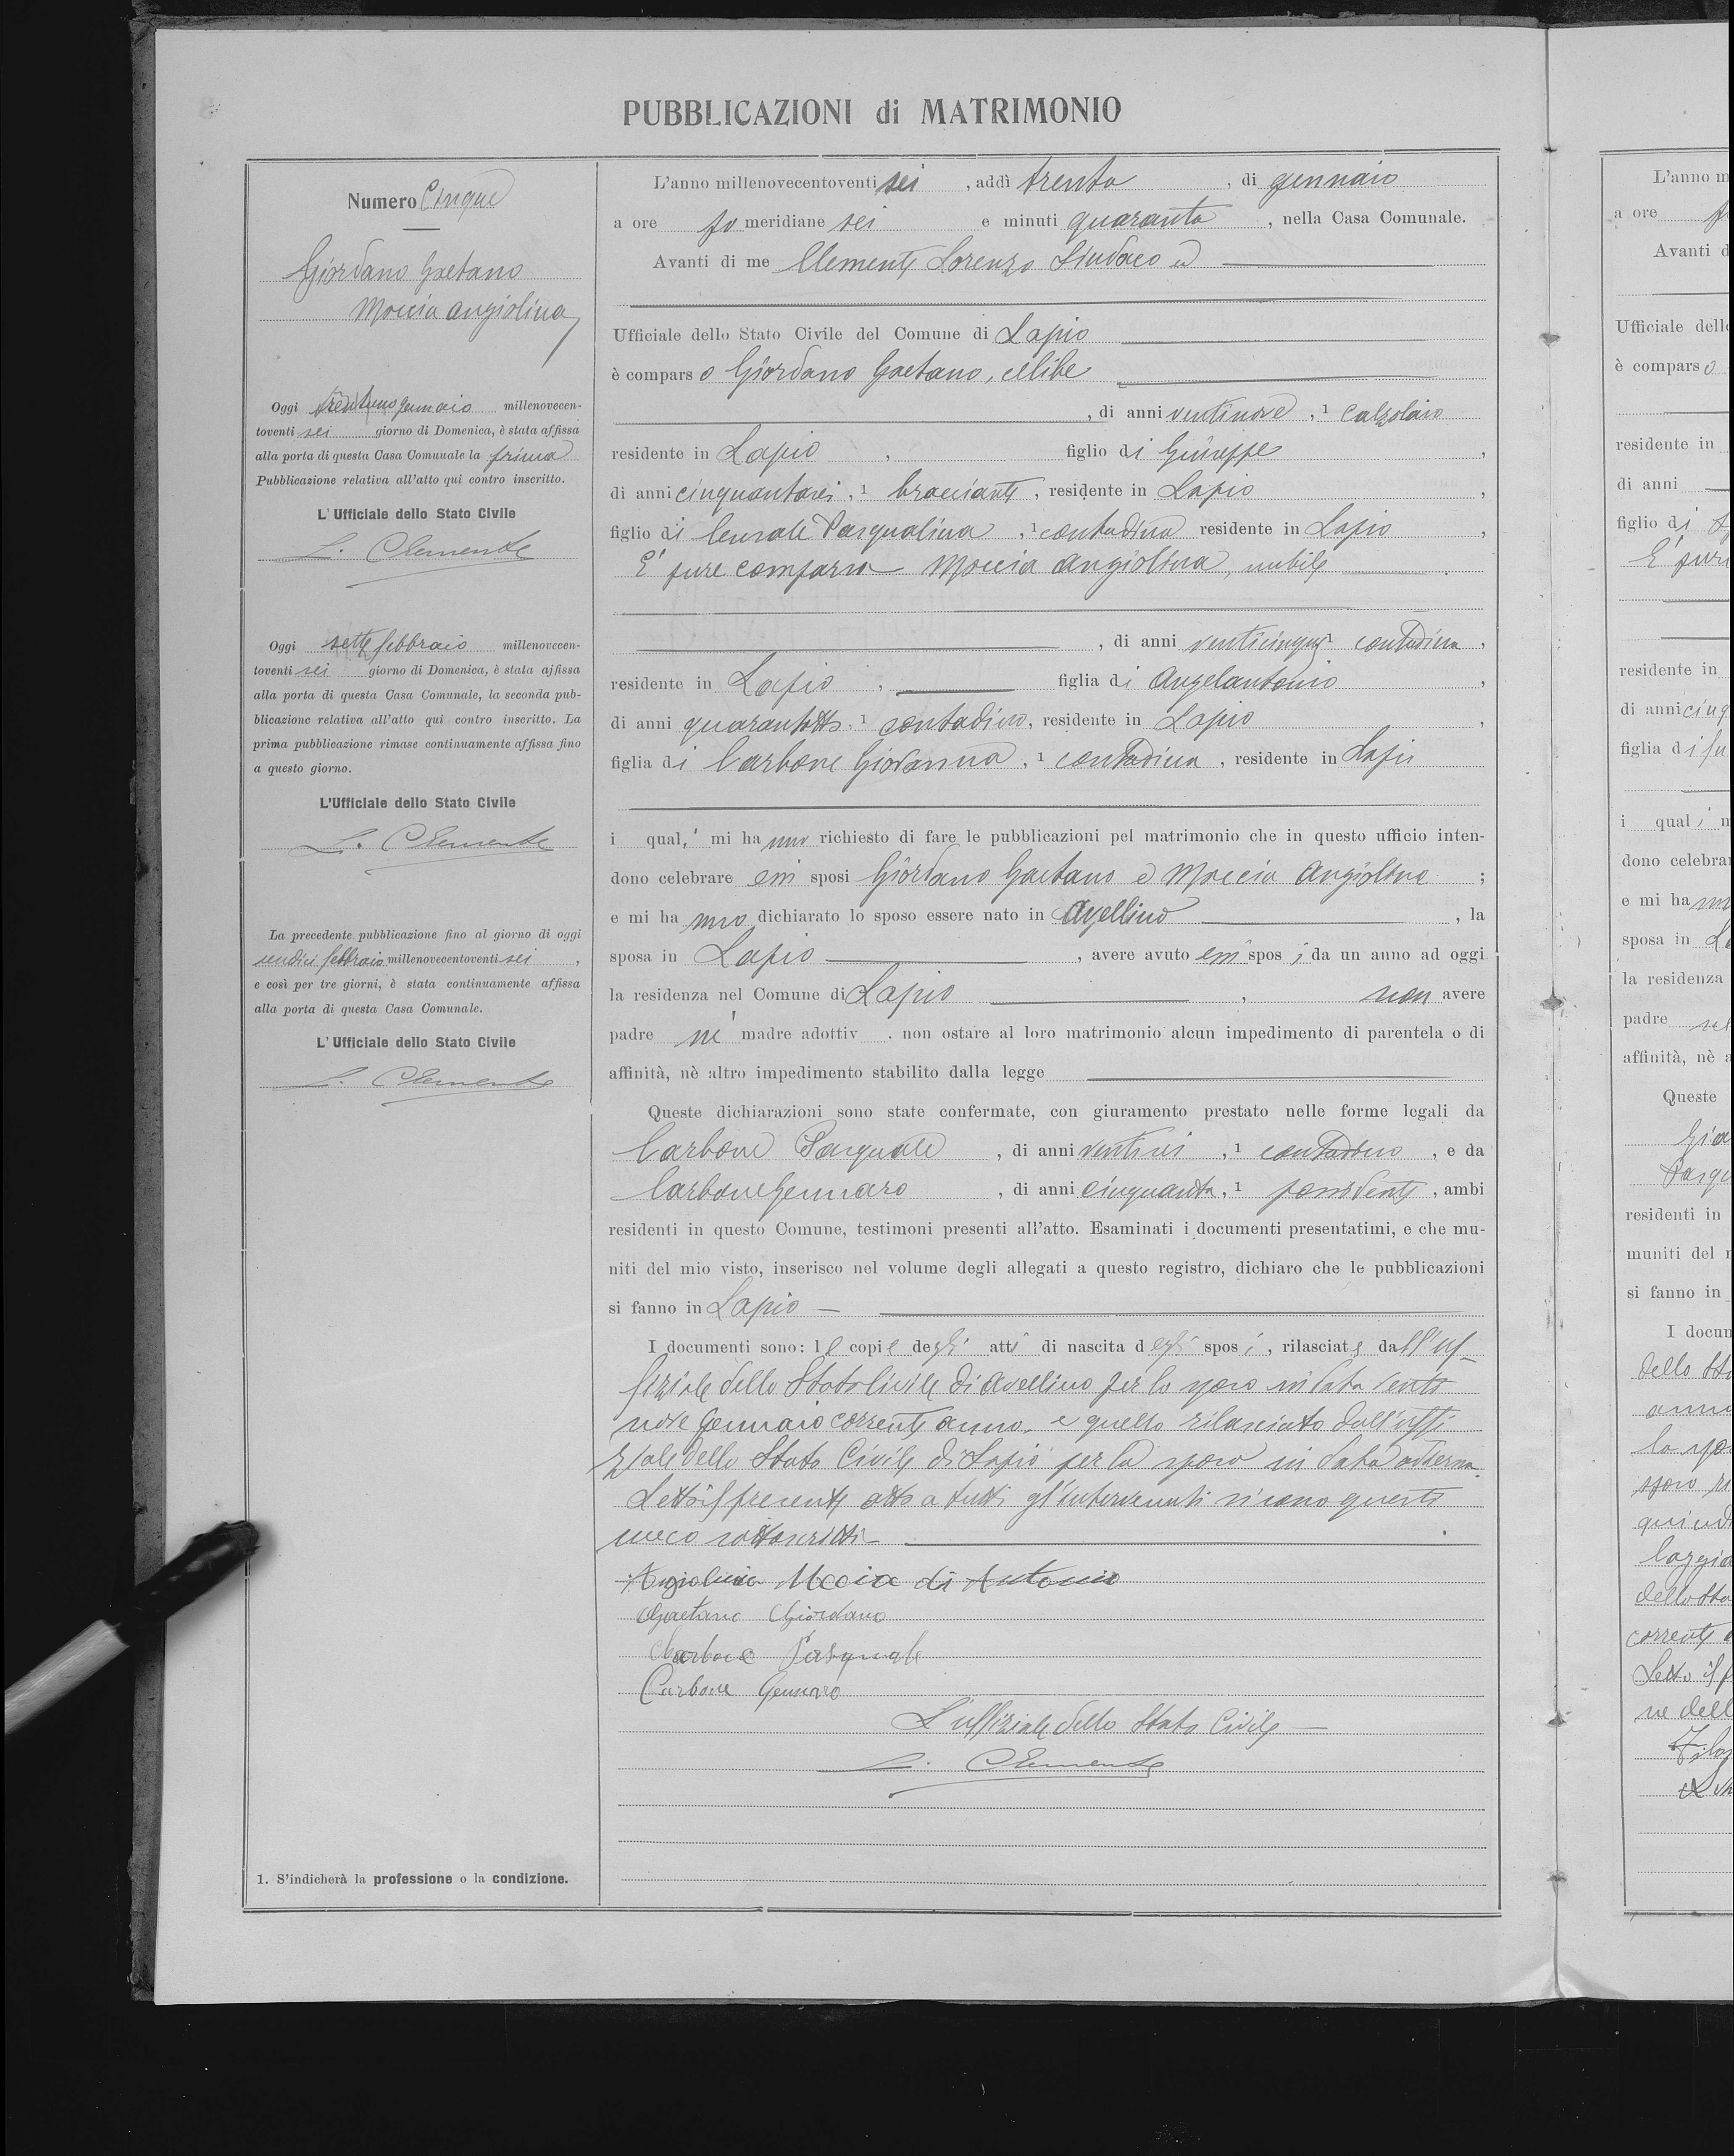 PUBBLICAZIONI di MATRIMONIO
Numero Cinque
Giordano Gaetano
Moccia Angiolina
Oggi trentuno gennaio millenovecen-
toventi sei giorno di Domenica, è stata affissa
alla porta di questa Casa Comunale la prima
Pubblicazione relativa all'atto qui contro inscritto.
L'Ufficiale dello Stato Civile
L. Clemente
Oggi sette febbraio millenovecen-
toventi sei giorno di Domenica, è stata ajfissa
alla porta di questa Casa Comunale, la seconda pub-
blicazione relativa all'atto qui contro inscritto. La
prima pubblicazione rimase continuamente affissa fino
a questo giorno.
L'Ufficiale dello Stato Civile
L. Clemente
La precedente pubblicazione fino al giorno di oggi
undici febbraio millenovecentoventi sei ,
e così per tre giorni, è stata continuamente affissa
alla porta di questa Casa Comunale.
L'Ufficiale dello Stato Civile
L. Clemente
1. S'indicherà la professione o la condizione.
L'anno millenovecentoventi sei , addì trenta , di gennaio
a ore po meridiane sei e minuti quaranta , nella Casa Comunale.
Avanti di me Clemente Lorenzo Sindaco ed
Ufficiale dello Stato Civile del Comune di Lapio
è compars o Giordano Gaetano, celibe
, di anni ventinove , 1 calzolaio
residente in Lapio , figlio di Giuseppe ,
di anni cinquantasei , 1 bracciante , residente in Lapio ,
figlio di Censale Pasqualina , 1 contadina residente in Lapio ,
E' pure comparsa Moccia Angiolina, nubile
, di anni venticinque 1 contadina ,
residente in Lapio , figlia di Angelantonio ,
di anni quarantotto , 1 contadino , residente in Lapio ,
figlia di Carbone Giovanna , 1 contadina , residente in Lapio
i quali mi hanno richiesto di fare le pubblicazioni pel matrimonio che in questo ufficio inten-
dono celebrare essi sposi Giordano Gaetano e Moccia Angiolina ;
e mi hanno dichiarato lo sposo essere nato in Avellino , la
sposa in Lapio , avere avuto essi sposi da un anno ad oggi
la residenza nel Comune di Lapio , non avere
padre nè madre adottiv . non ostare al loro matrimonio alcun impedimento di parentela o di
affinità, nè altro impedimento stabilito dalla legge
Queste dichiarazioni sono state confermate, con giuramento prestato nelle forme legali da
Carbone Pasquale , di anni ventisei , 1 contadino , e da
Carbone Gennaro , di anni cinquanta , 1 possidente , ambi
residenti in questo Comune, testimoni presenti all'atto. Esaminati i documenti presentatimi, e che mu-
niti del mio visto, inserisco nel volume degli allegati a questo registro, dichiaro che le pubblicazioni
si fanno in Lapio
I documenti sono: le copie degli atti di nascita degli sposi , rilasciate dall'uf-
fiziale dello Stato Civile di Avellino per lo sposo in data venti
nove gennaio corrente anno e quello rilasciato dall'uffi
ziale dello Stato Civile di Lapio per la sposa in data odierna.
Letto il presente atto a tutti gl'intervenuti si sono questi
meco sottoscritti
Angiolina Moccia di Antonio
Gaetano Giordano
Carbone Pasquale
Carbone Gennaro
L'uffiziale dello Stato Civile
L. Clemente
L'anno m
a ore
Avanti d
Ufficiale dell
è compars o
residente in
di anni
figlio di
E' pur
residente in
di anni cinq
figlia di fu
i quali
dono celebra
e mi ha
sposa in
la residenza
padre
affinità, nè a
Queste
residenti in
muniti del
si fanno in
I docu
dello
corrente